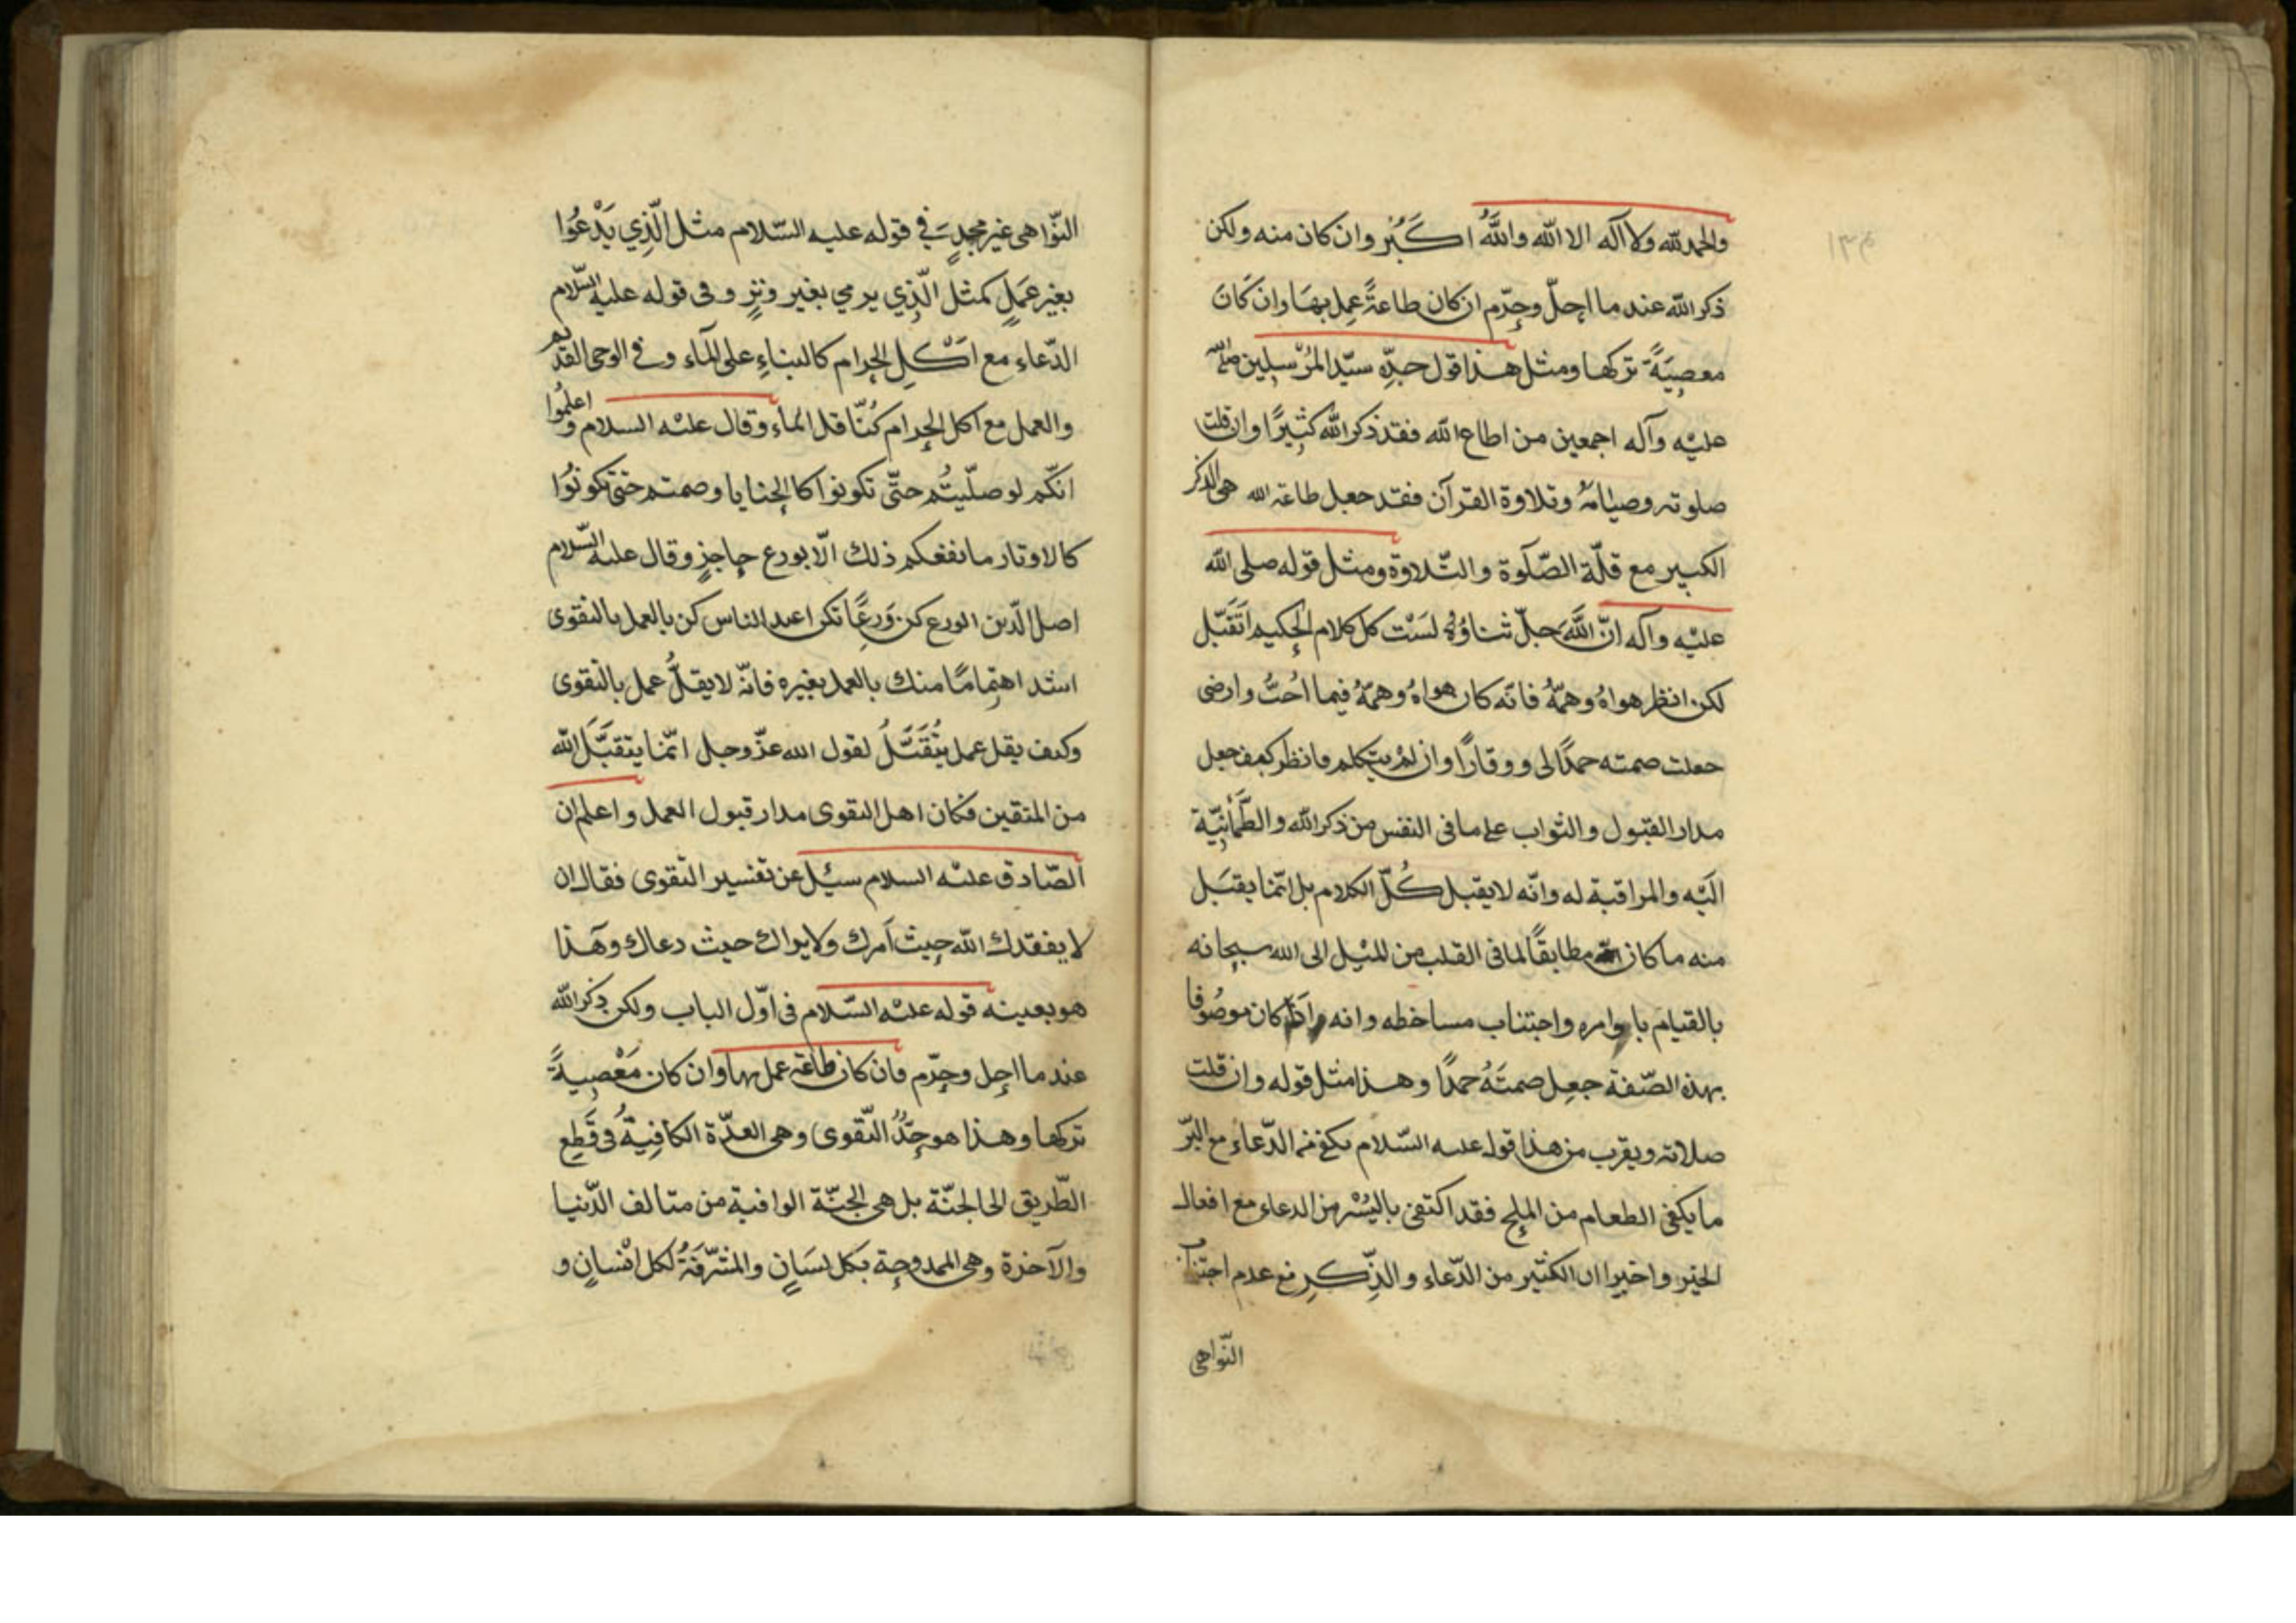 والحمد لله ولا آله الا الله واللهُ اكَبُر وان كان منه ولكن
ذكر الله عند ما احلّ وحرّم ان كان طاعةً عمِل بهَا وان كَانَ
معصِيَةً تركها ومثل هذا قول جدِّه سيّد المُرْسلِين صلى الله
عليْه وآله اجمعين من اطاع الله فقد ذكر الله كثِيرًا وان قلت
صلوته وصيٰامهُ وتلاوة القرآن فقد جعل طاعة الله هى الذكر
الكبير مع قلّة الصّلوة والتّلاوة ومثل قوله صلى الله
عليْه وآله انّ اللَّهَ جلّ ثناؤُهُ لسَتْ كل كلام الحكيم اَتَقَبّل
لكن انظر هواهُ وهمّهُ فانّه كان هواهُ وهمّهُ فيما اُحبُّ وارضى
جعلت صمته حمدًا لى ووقارًا وان لمْ يتكلم فانظر كيف جعل
مدار القبول والثواب على ما فى النفس من ذكر الله والطَّمأنِيّة
اليْه والمراقبة له وانّه لا يقبل كُلّ الكلام بل انّما يقبَل
منه ما كان مطابقًا لما فى القلب من الميْل الى الله سبحانه
بالقيام باوامره واجتناب مساخطه وانه اذا كان موصُوفا
بهذه الصّفة جعِل صمتَهُ حمدًا وهذا مثل قوله وان قلت
صلاته ويقرب من هذا قوله عليه السّلام يكفى من الدّعاءِ مع البرّ
ما يكفى الطعام من الملِح فقد اكتفى باليُسْر من الدعاء مع افعال
الخير واخبر ان الكثير من الدّعاء والذِّكرِ مع عدم اجتناب
النّواهى
النّواهى غير مجدٍ فى قوله عليه السّلام مثل الّذِي يَدْعُوا
بغير عمَلٍ كمثل الّذِي يرمي بغير وترٍ وفى قوله عليه السّلام
الدّعاء مع اَكْلِ الحرام كالبناءِ على المآء وفى الوحى القديم
والعمل مع اكل الحرام كناقل الماء وقال عليْه السلام واعلمُوا
انّكم لو صلّيتُم حتّى تكونوا كالحنايا وصمتم حتى تكونُوا
كالاوتار ما نفعكم ذلك الّا بورع حاجزٍ وقال عليه السّلام
اصل الدّين الورع كن وَرِعًا تكن اعبد الناس كن بالعمل بالتقوى
اشد اهتِمامًا منك بالعمل بغيره فانّه لا يقلُّ عمل بالتقوى
وكيف يقل عمل يُتَقَبَّلُ لقول الله عزّ وجل انّما يتقبَّلَ الله
من المتقين فكان اهل التقوى مدار قبول العمل واعلم ان
الصّادق عليْه السلام سئِل عن تفسير التقوى فقال ان
لا يفقدك الله حيث اَمرك ولا يراك حيث دعاك وهَذا
هو بعينه قوله عليْه السّلام فى اوّل الباب ولكن ذكر الله
عند ما احل وحرّم فان كان طاعة عمل بها وان كان مَعْصِيةً
تركها وهذا هو حدُّ التّقوى وهى العدّة الكافِيةُ فى قَطِع
الطّريق الى الجنّة بل هى الجنّة الواقية من متالف الدّنيا
والآخرة وهى الممدوحة بكل لسَانٍ والمشرّفَةُ لكل انْسانٍ و